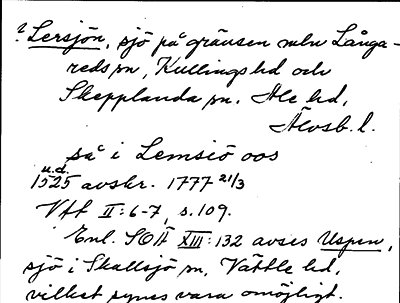 ? Lersjön, sjö på gränsen mln Långa-
reds sn, Kullings hd och
Skepplanda sn. Ale hd,
Älvsb. l.
på i Lemsiö oos
u.d.
1525 avskr. 1777 21/3
Vff II:6-7, s. 109.
Enl. SOÄ XIII:132 avses Uspen,
sjö i Skallsjö sn, Vättle hd,
vilket synes vara omöjligt.